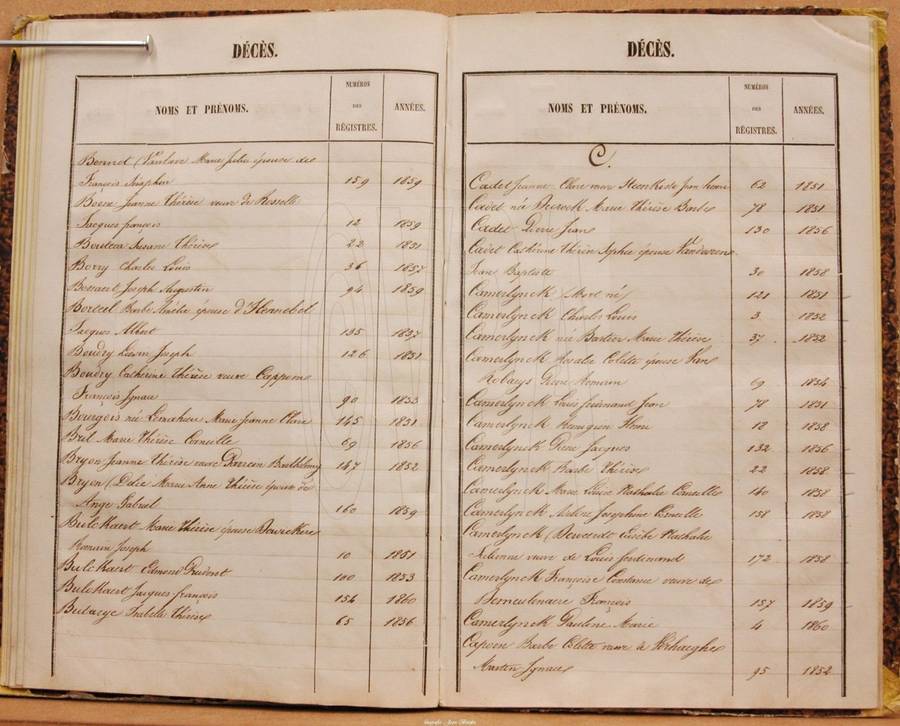 DÉCÈS.
NOMS ET PRÉNOMS.
NUMÉROS
DES
RÉGISTRES.
ANNÉES.
Bonnet Marie Julie épouse de
François Séraphin 159 1859
Jeanne Thérèse veuve de Rosselle
Jacques françois 12 1859
Susane Thérèse 22 1851
Borry Charles Louis 36 1857
Joseph Augustin 94 1859
Barbe épouse d'Hennebel
Jacques Albert 135 1857
Boudry Joseph 126 1851
Boudry Cathérine Thérèse veuve Cappons
François Ignace 90 1853
Bourgois née Marie Jeanne Claire 145 1851
Bril Marie Thérèse Corneille 69 1856
Bryon Jeanne Thérèse veuve Barthélemy 147 1852
Bryon Marie Anne Thérèse épouse de
Ange Gabriel 160 1859
Bulckaert Marie Thérèse épouse
Romain Joseph 10 1851
Bulckaert Edmond 100 1853
Bulckaert Jacques françois 154 1860
Isabelle Thérèse 65 1856
DÉCÈS.
NOMS ET PRÉNOMS.
NUMÉROS
DES
RÉGISTRES.
ANNÉES.
C.
Cadet Jeanne Claire veuve Jean 62 1851
Cadet née Marie Thérèse Barbe 78 1851
Cadet Pierre Jean 130 1856
Cadet Cathérine Thérèse Sophie épouse
Jean Baptiste 30 1858
Camerlynck Mort né 121 1851
Camerlynck Charles Louis 3 1852
Camerlynck née Bartier Marie Thérèse 37 1852
Camerlynck Rosalie Colette épouse Van
Robays Pierre Romain 69 1854
Camerlynck Louis ferdinand Jean 78 1851
Camerlynck 18 1858
Camerlynck Pierre Jacques 132 1856
Camerlynck Barbe Thérèse 22 1858
Camerlynck Marie Louise Nathalie Corneille 140 1858
Camerlynck Joséphine Corneille 158 1858
Camerlynck Nathalie
veuve de Louis ferdinand 172 1858
Camerlynck Françoise Constance veuve de
François 157 1859
Camerlynck Pauline Marie 4 1860
Capoen Barbe Colette veuve
Martin Ignace 95 1852